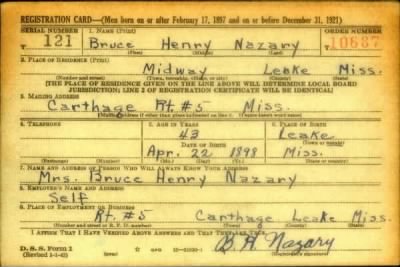 REGISTRATION CARD—(Men born on or after February 17, 1897 and on or before December 31, 1921)
SERIAL NUMBER 1. NAME (Print) ORDER NUMBER
T 121 Bruce Henry Nazary 10687
(First) (Middle) (Last)
2. PLACE OF RESIDENCE (Print)
Midway Leake Miss.
(Number and street) (Town, township, village, or city) (County) (State)
[THE PLACE OF RESIDENCE GIVEN ON THE LINE ABOVE WILL DETERMINE LOCAL BOARD
JURISDICTION; LINE 2 OF REGISTRATION CERTIFICATE WILL BE IDENTICAL]
3. MAILING ADDRESS
Carthage Rt. #5 Miss.
[Mailing address if other than place indicated on line 2. If same insert word same]
4. TELEPHONE 5. AGE IN YEARS 6. PLACE OF BIRTH
43 Leake
DATE OF BIRTH (Town or county)
Apr. 22 1898 Miss.
(Exchange) (Number) (Mo.) (Day) (Yr.) (State or country)
7. NAME AND ADDRESS OF PERSON WHO WILL ALWAYS KNOW YOUR ADDRESS
Mrs. Bruce Henry Nazary
8. EMPLOYER'S NAME AND ADDRESS
Self
9. PLACE OF EMPLOYMENT OR BUSINESS
Rt. #5 Carthage Leake Miss.
(Number and street or R. F. D. number) (Town) (County) (State)
I AFFIRM THAT I HAVE VERIFIED ABOVE ANSWERS AND THAT THEY ARE TRUE.
D. S. S. Form 1 B. H. Nazary
(Revised 1-1-42) GPO (Registrant's signature)